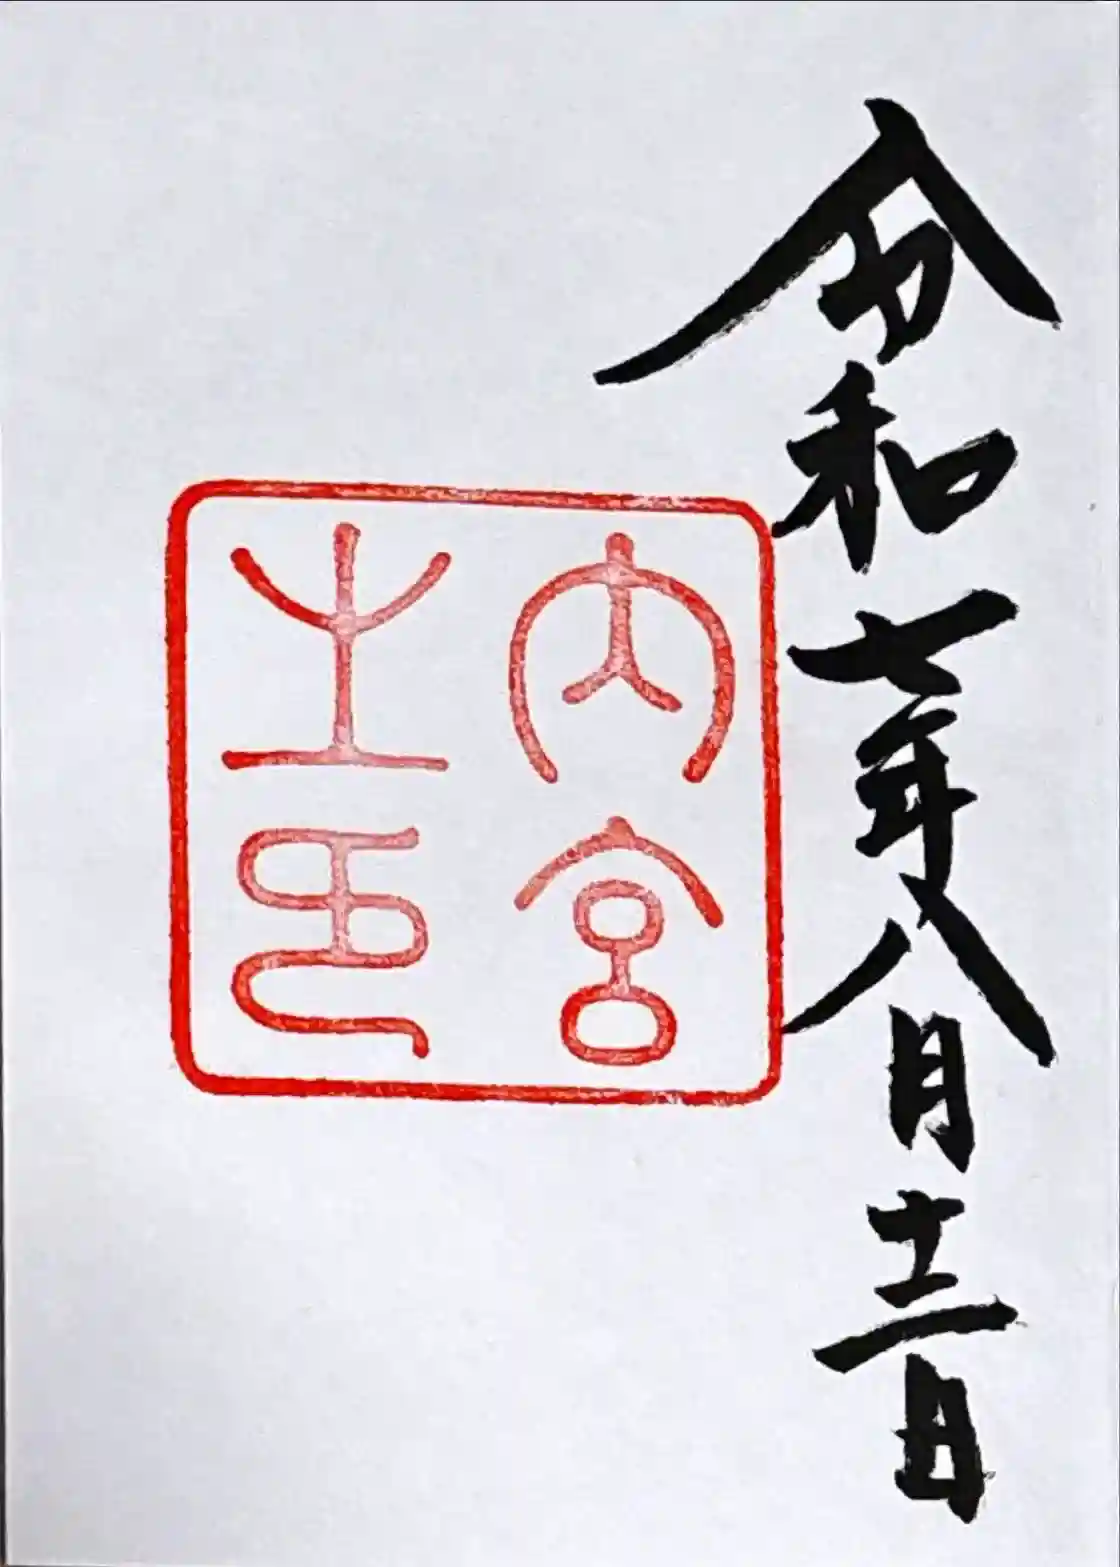 令和七年八月十二日
内宮
之印